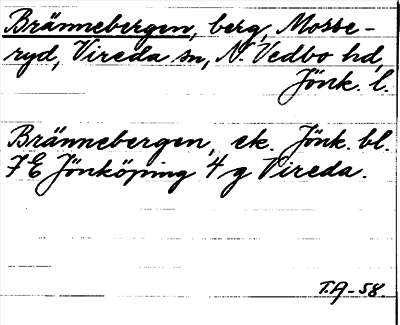 Brännebergen, berg, Mosse-
ryd, Vireda sn, N. Vedbo hd,
Jönk. l.
Brännebergen, ek. Jönk. bl.
7 E Jönköping 4 g Vireda.
T.A-58.